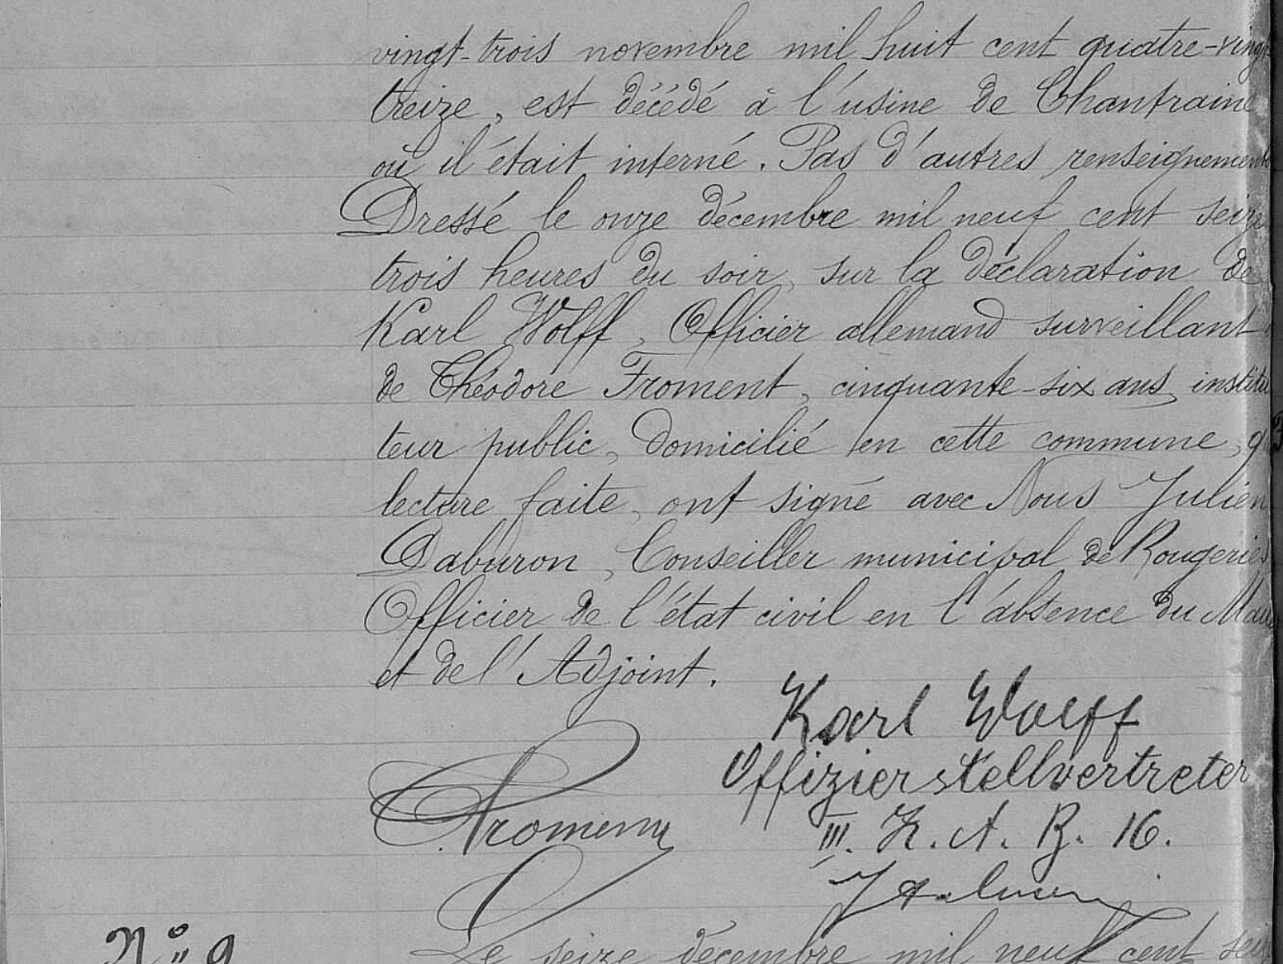 vingt-trois novembre mil huit cent quatre-vingt
treize, est décédé à l'usine de Chantraine
où il était interné. Pas d'autres renseignements
Dressé le onze décembre mil neuf cent seize
trois heures du soir, sur la déclaration de
Karl Wolff, Officier allemand surveillant
de Théodore Froment, cinquante-six ans, institu
teur public, domicilié en cette commune, q
lecture faite, ont signé avec Nous Julien
Daburon, Conseiller municipal de Rougeries
Officier de l'état civil en l'absence du Maire
et de l'Adjoint.
Karl Wolff
Offizierstellvertreter
Froment
III. Z. A. B. 16.
Le seize décembre mil neuf cent sei
N° 9